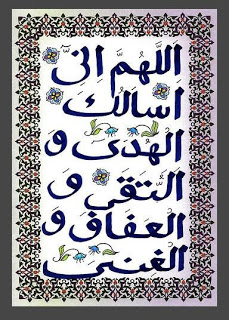 اللهُمَّ اِنّى
اَسالُكَ
الهُدىٰ وَ
التُقىٰ وَ
العَفافَ وَ
الغِنىٰ